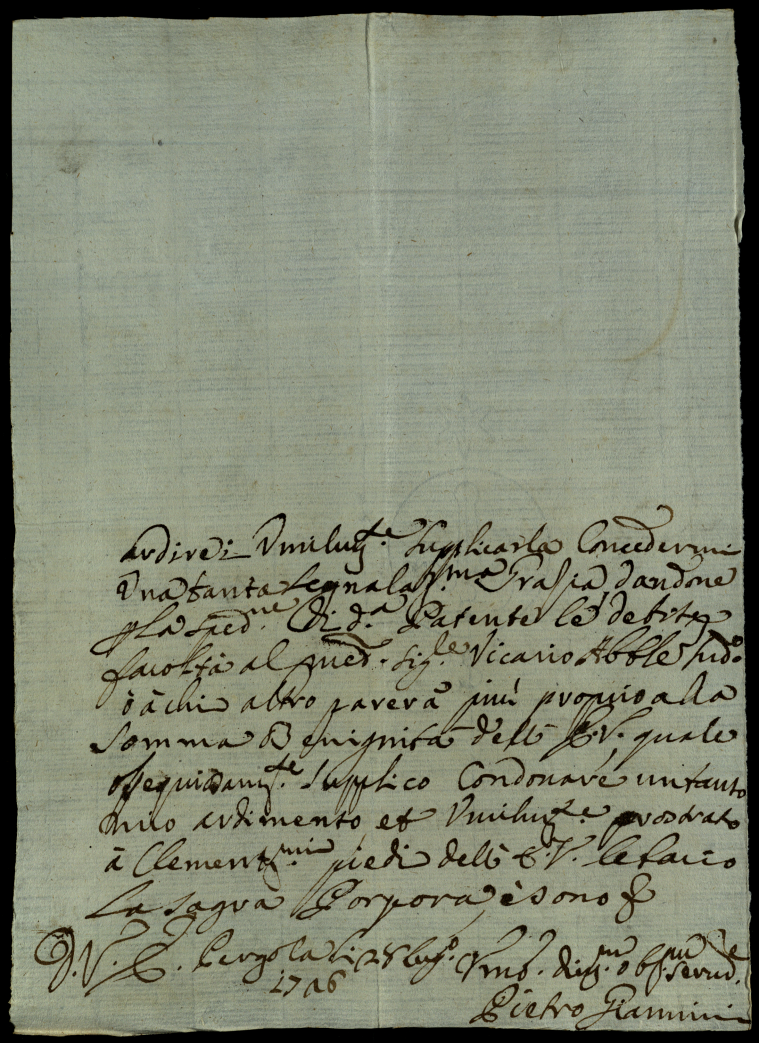 ardirei Vmilm.te Supplicarla Concedermi
Vna tanta Segnalat.ma Grasia, dandone
p la sped.ne di d.a Patente le debite
facoltà al med. Sig.re Vicario Abble sud.o
ò à chi altro parerà più proprio alla
Somma Benignità dell' E.V. quale
ossequiosam.te Supplico Condonare, un tanto
mio ardimento, et Vmilm.te prostrato
à Clement.mi piedi dell' E.V. le bacio
la Sagra Porpora, è sono
D.V.E. Pergola li 28 lug.o Vmo.
Pietro Giannini